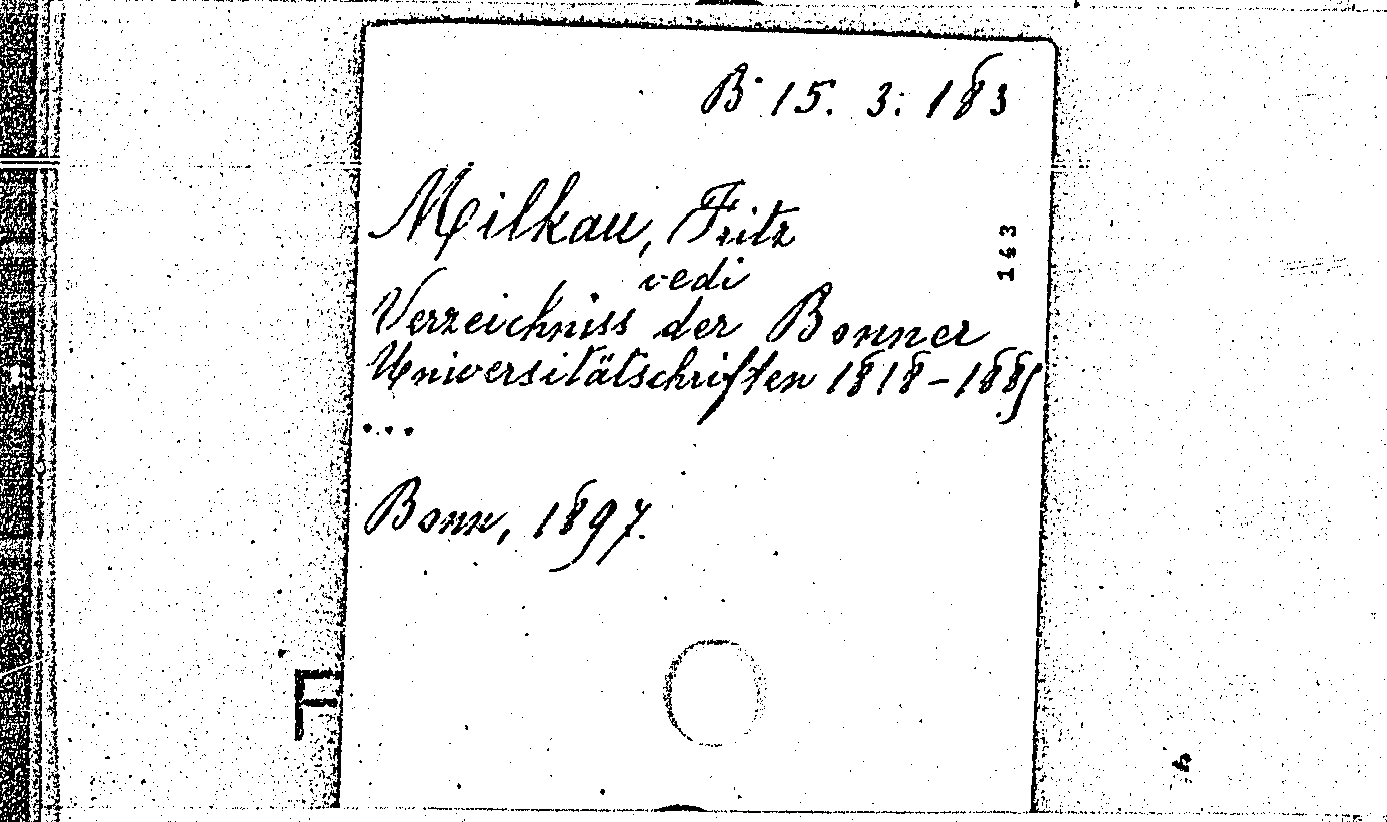 B. 15. 3. 183
Milkau, Fritz
vedi
Verzeichniss der Bonner
Universitätschriften 1818-1885
...
Bonn, 1897.
143
F